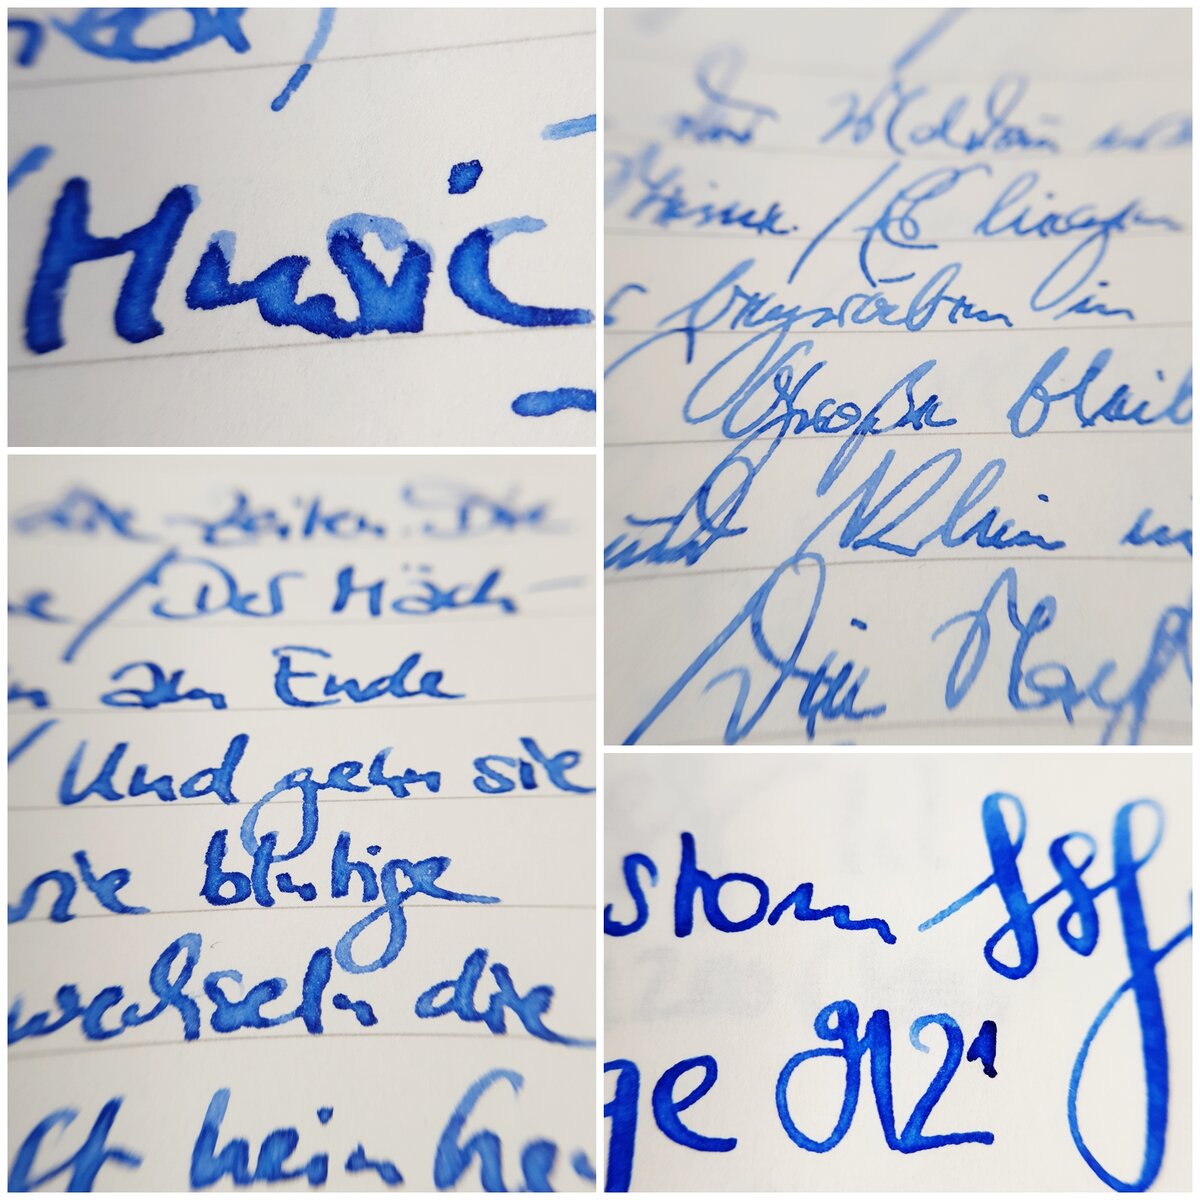 Music
die Zeiten. Die
/ Der Mäch-
am Ende
/ Und gehn sie
wie blutige
wechseln die
kein Ge
der Moldau wa
Steine. / Es liegen
begraben in
Große bleib
klein ni
Die Nach
stom
ge 912